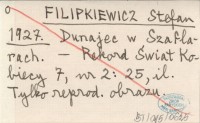 FILIPKIEWICZ Stefan
1927. Dunajec w Szafla-
rach. — Rekord Świat Ko-
biecy 7, nr 2: 25, il.
Tylko reprod. obrazu.